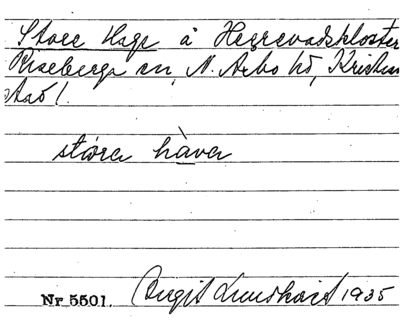 Store Hage å Herrevadskloster
Riseberga sn, N. Åsbo hd, Kristian
stad l.
stora hàva
Nr 5501. Birgit 1935